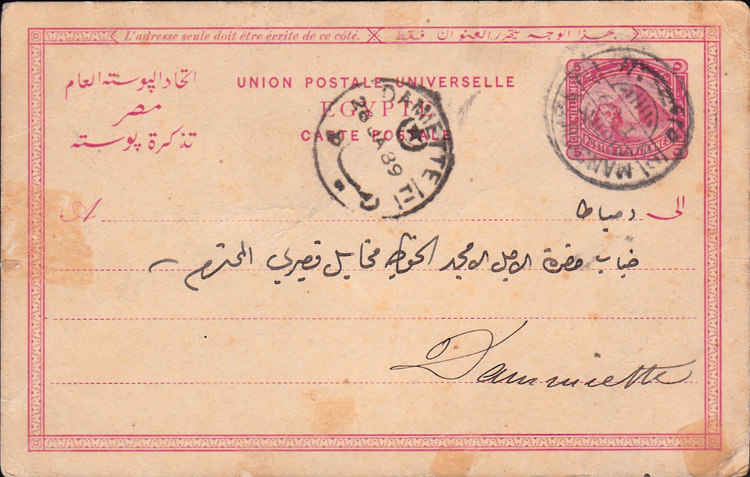 L'adresse seule doit être écrite de ce côté. بهذا الوجه يتحرر العنوان فقط
اتحاد البوسته العام
مصر
تذكرة بوسته
UNION POSTALE UNIVERSELLE
EGYPTE
CARTE POSTALE
DAMIETTE
26 JA 89
A
الى دمياط
جناب حضرة الاجل الامجد الخواجه مخايل قصيري المحترم
Dammiette